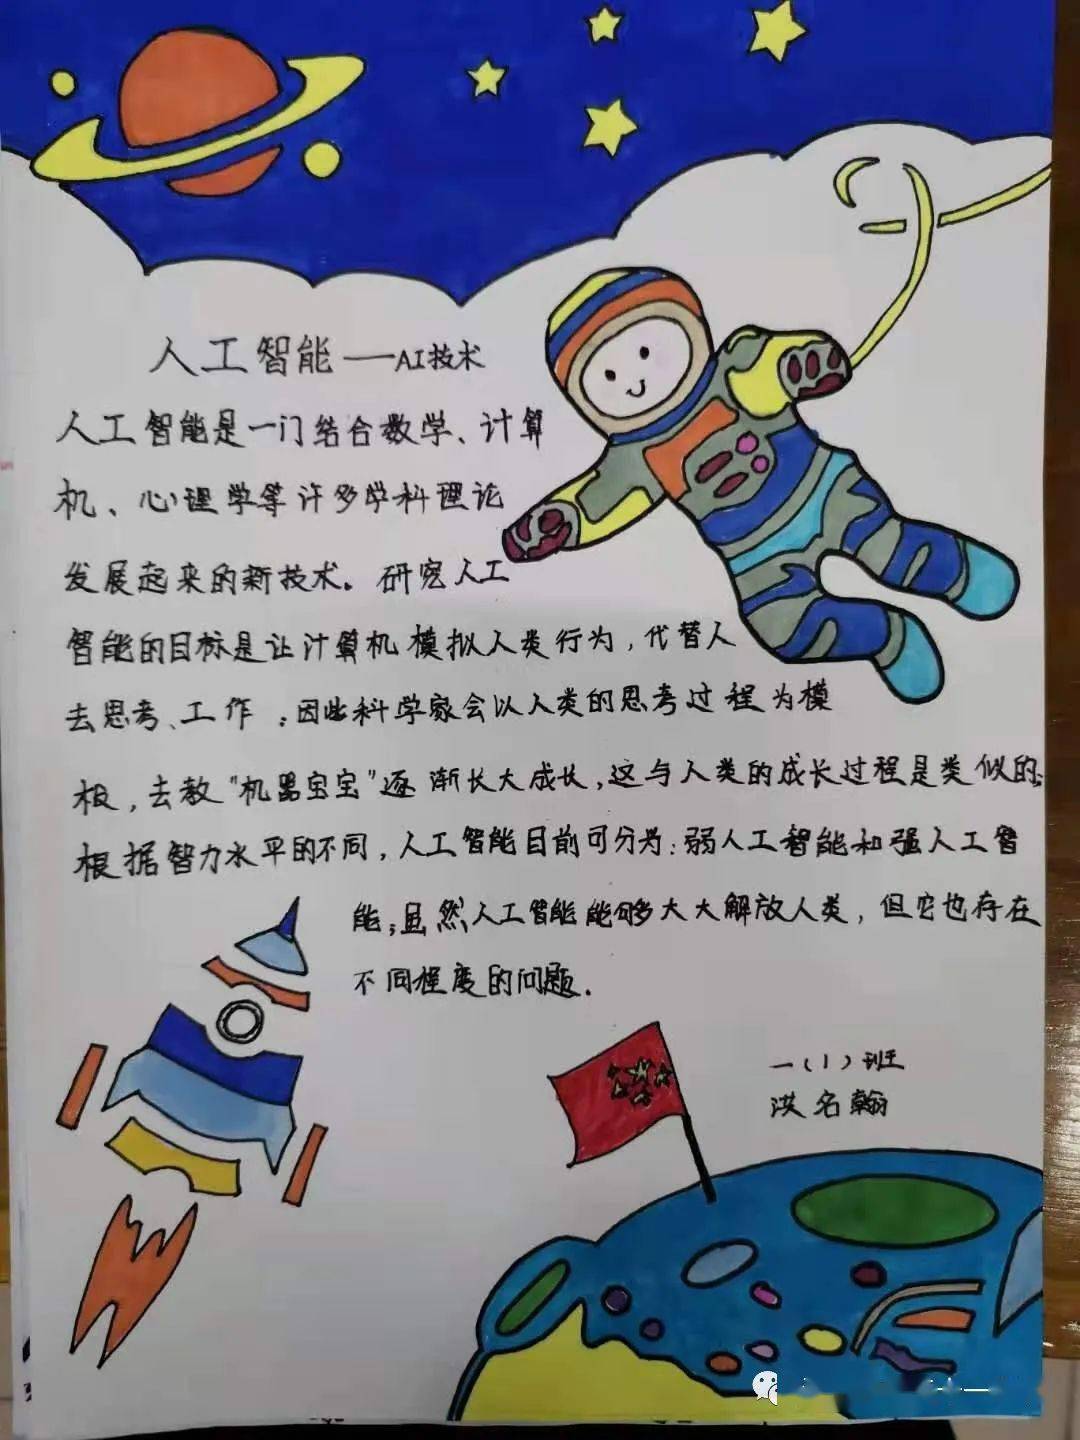 人工智能——AI技术
人工智能是一门结合数学、计算
机、心理学等许多学科理论
发展起来的新技术。研究人工
智能的目标是让计算机模拟人类行为，代替人
去思考、工作；因此科学家会以人类的思考过程为模
板，去教“机器宝宝”逐渐长大成长，这与人类的成长过程是类似的；
根据智力水平的不同，人工智能目前可分为：弱人工智能和强人工智
能；虽然人工智能能够大大解放人类，但它也存在
不同程度的问题.
一(1)班
洪名翰